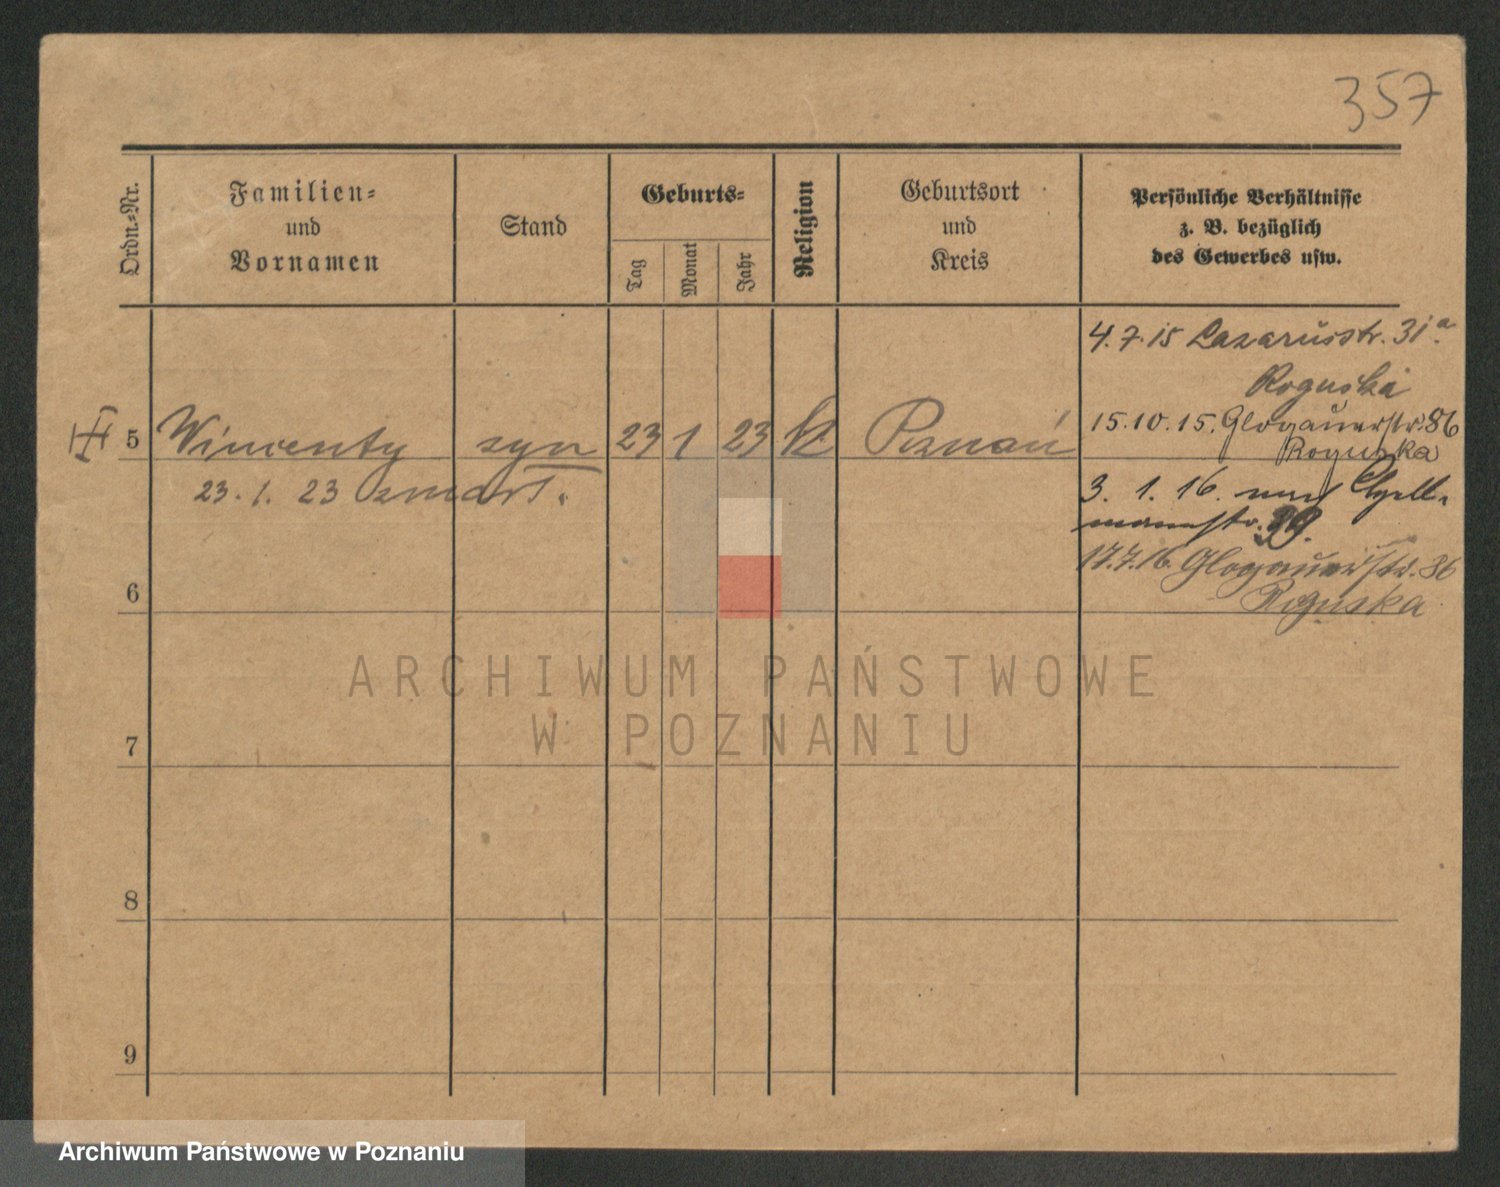 357
Ordn.-Nr.
Familien-
und
Vornamen
Stand
Geburts-
Tag
Monat
Jahr
Religion
Geburtsort
und
Kreis
Persönliche Verhältnisse
z. B. bezüglich
des Gewerbes usw.
4.7.15 Lazarusstr. 31a.
Roguska
15.10.15. Glogauerstr. 86
Roguska
5 Wincenty syn 23 1 23 k. Poznań
23. 1. 23 zmarł.
3. 1. 16.
mannstr. 39.
17.7.16. Glogauerstr. 86
Roguska
6
7
8
9
ARCHIWUM PAŃSTWOWE
W POZNANIU
Archiwum Państwowe w Poznaniu